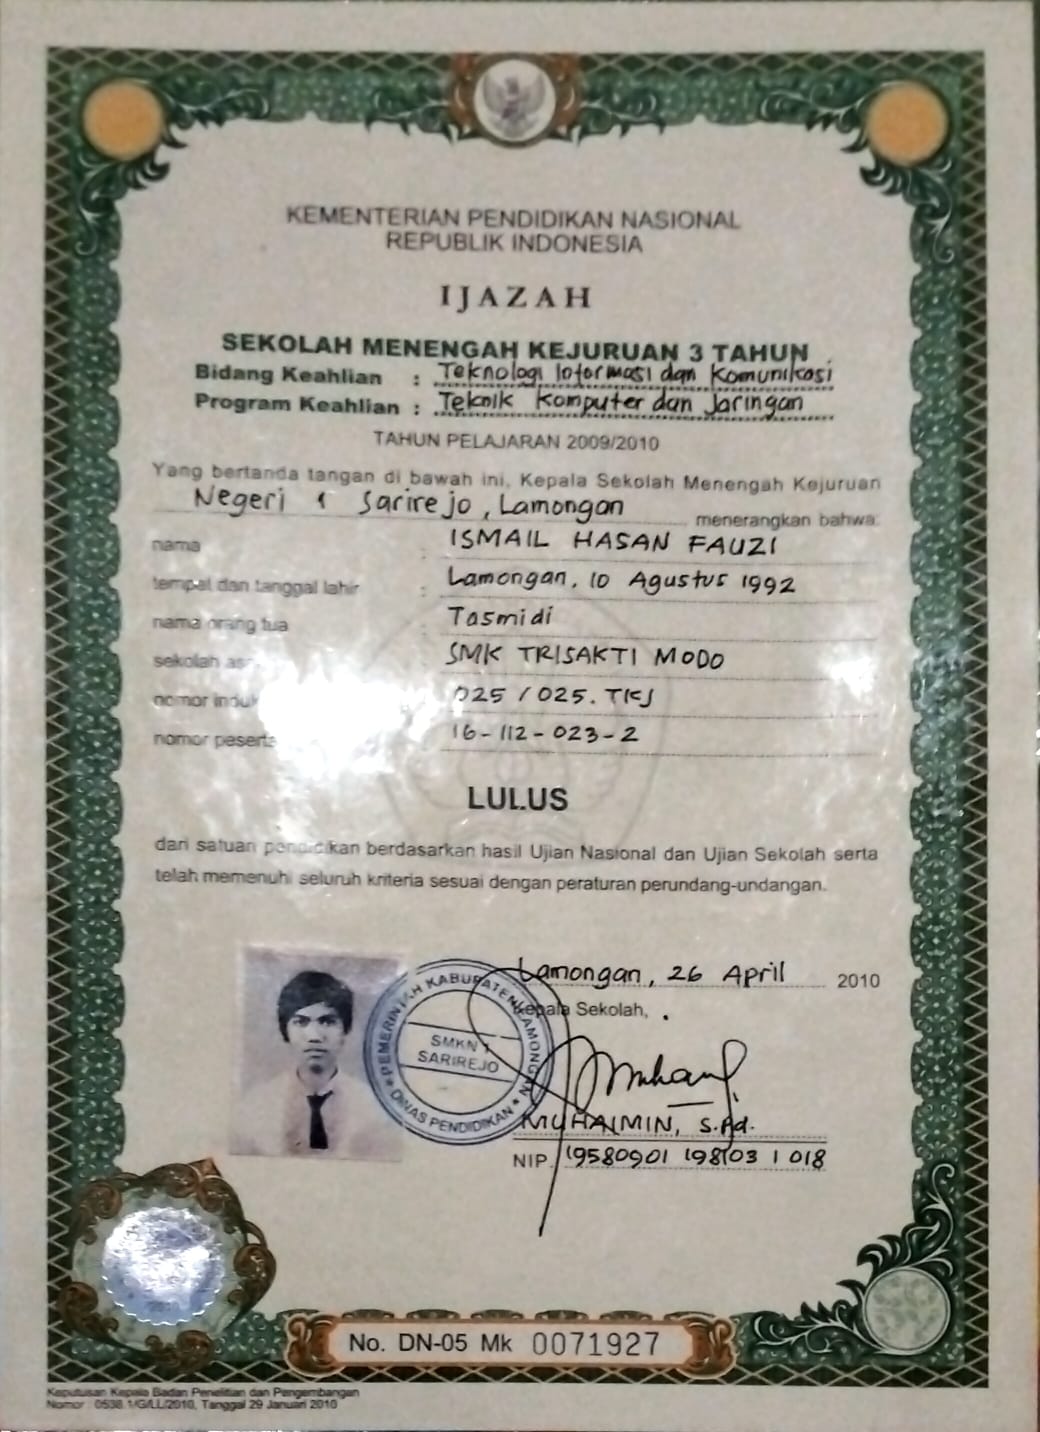 KEMENTERIAN PENDIDIKAN NASIONAL
REPUBLIK INDONESIA
IJAZAH
SEKOLAH MENENGAH KEJURUAN 3 TAHUN
Bidang Keahlian : Teknologi Informasi dan Komunikasi
Program Keahlian : Teknik Komputer dan Jaringan
TAHUN PELAJARAN 2009/2010
Yang bertanda tangan di bawah ini, Kepala Sekolah Menengah Kejuruan
Negeri 1 Sarirejo, Lamongan menerangkan bahwa:
nama : ISMAIL HASAN FAUZI
tempat dan tanggal lahir : Lamongan, 10 Agustus 1992
nama orang tua : Tasmidi
sekolah SMK TRISAKTI MODO
nomor induk 025 / 025. TKJ
nomor peserta 16-112-023-2
LULUS
dari satuan pendidikan berdasarkan hasil Ujian Nasional dan Ujian Sekolah serta
telah memenuhi seluruh kriteria sesuai dengan peraturan perundang-undangan.
Lamongan, 26 April 2010
Kepala Sekolah,
PEMERINTAH KABUPATEN LAMONGAN
SMKN 1
SARIREJO
* DINAS PENDIDIKAN *
MUHAIMIN, S.Pd.
NIP. 19580901 198103 1 018
No. DN-05 Mk 0071927
Keputusan Kepala Badan Penelitian dan Pengembangan
Nomor : 0538.1/G/LL/2010, Tanggal 29 Januari 2010